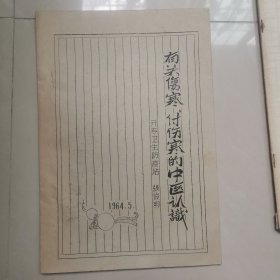 有关傷寒、付伤寒的中医认識
卫生防疫站
1964.5